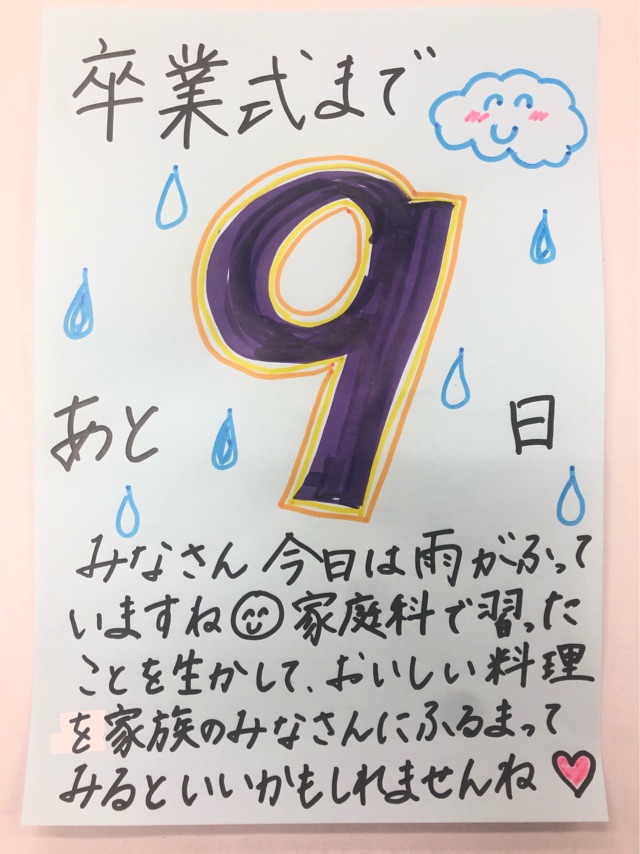 卒業式まで
9
あと 日
みなさん 今日は雨がふって
いますね 家庭科で習った
ことを生かして、おいしい料理
を家族のみなさんにふるまって
みるといいかもしれませんね